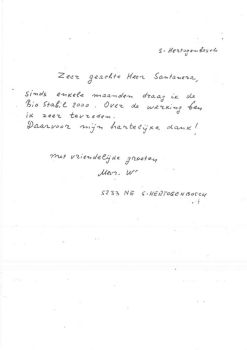 s-Hertogenbosch
Zeer geachte Heer Santanera,
Sinds enkele maanden draag ik de
Bio Stabil 2000. Over de werking ben
ik zeer tevreden.
Daarvoor mijn hartelijke dank!
met vriendelijke groeten
Mevr. W
5233 NG S-HERTOGENBOSCH